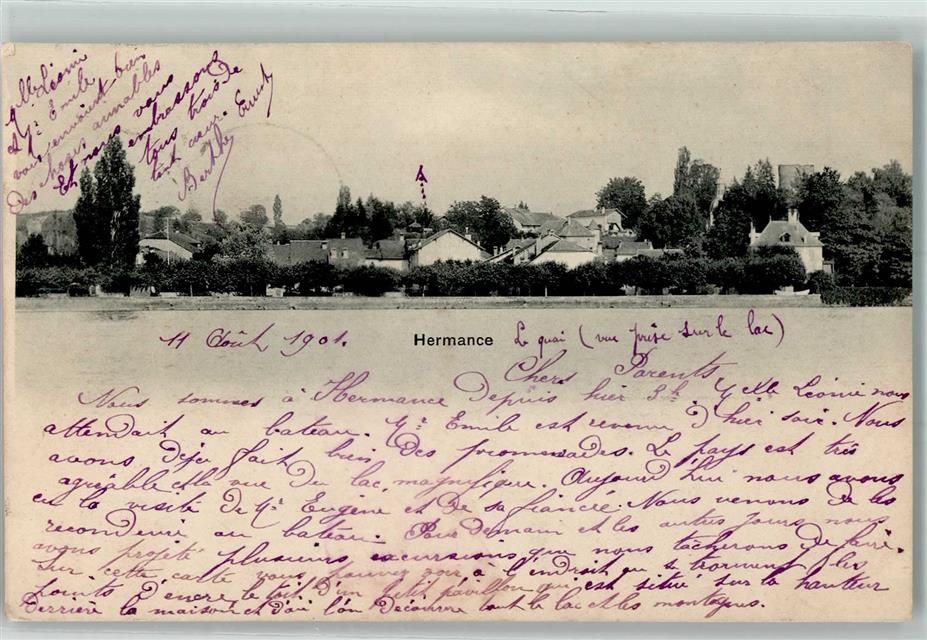 Mlle Léonie
et Mr Emile
vous envoient bien
des choses aimables
Et nous vous
embrassons
tous trois de
tout cœur.
Berthe Ernest
11 Août 1901.
Hermance
Le quai (vue prise sur le lac)
Chers Parents
Nous sommes à Hermance depuis hier 3h. Mlle Léonie nous
attendait au bateau. Mr Emile est revenu d'hier soir. Nous
avons déjà fait bien des promenades. Le pays est très
agréable et la vue du lac, magnifique. Aujourd'hui nous avons
eu la visite de Mr Eugène et de sa fiancée. Nous venons de les
reconduire au bateau. Pour demain et les autres jours nous
avons projeté plusieurs excursions que nous tâcherons de faire.
Sur cette carte vous pouvez voir à l'endroit où se trouvent les
points d'encre le toit d'un petit pavillon qui est situé sur la hauteur
derrière la maison et d'où l'on découvre tout le lac et les montagnes.